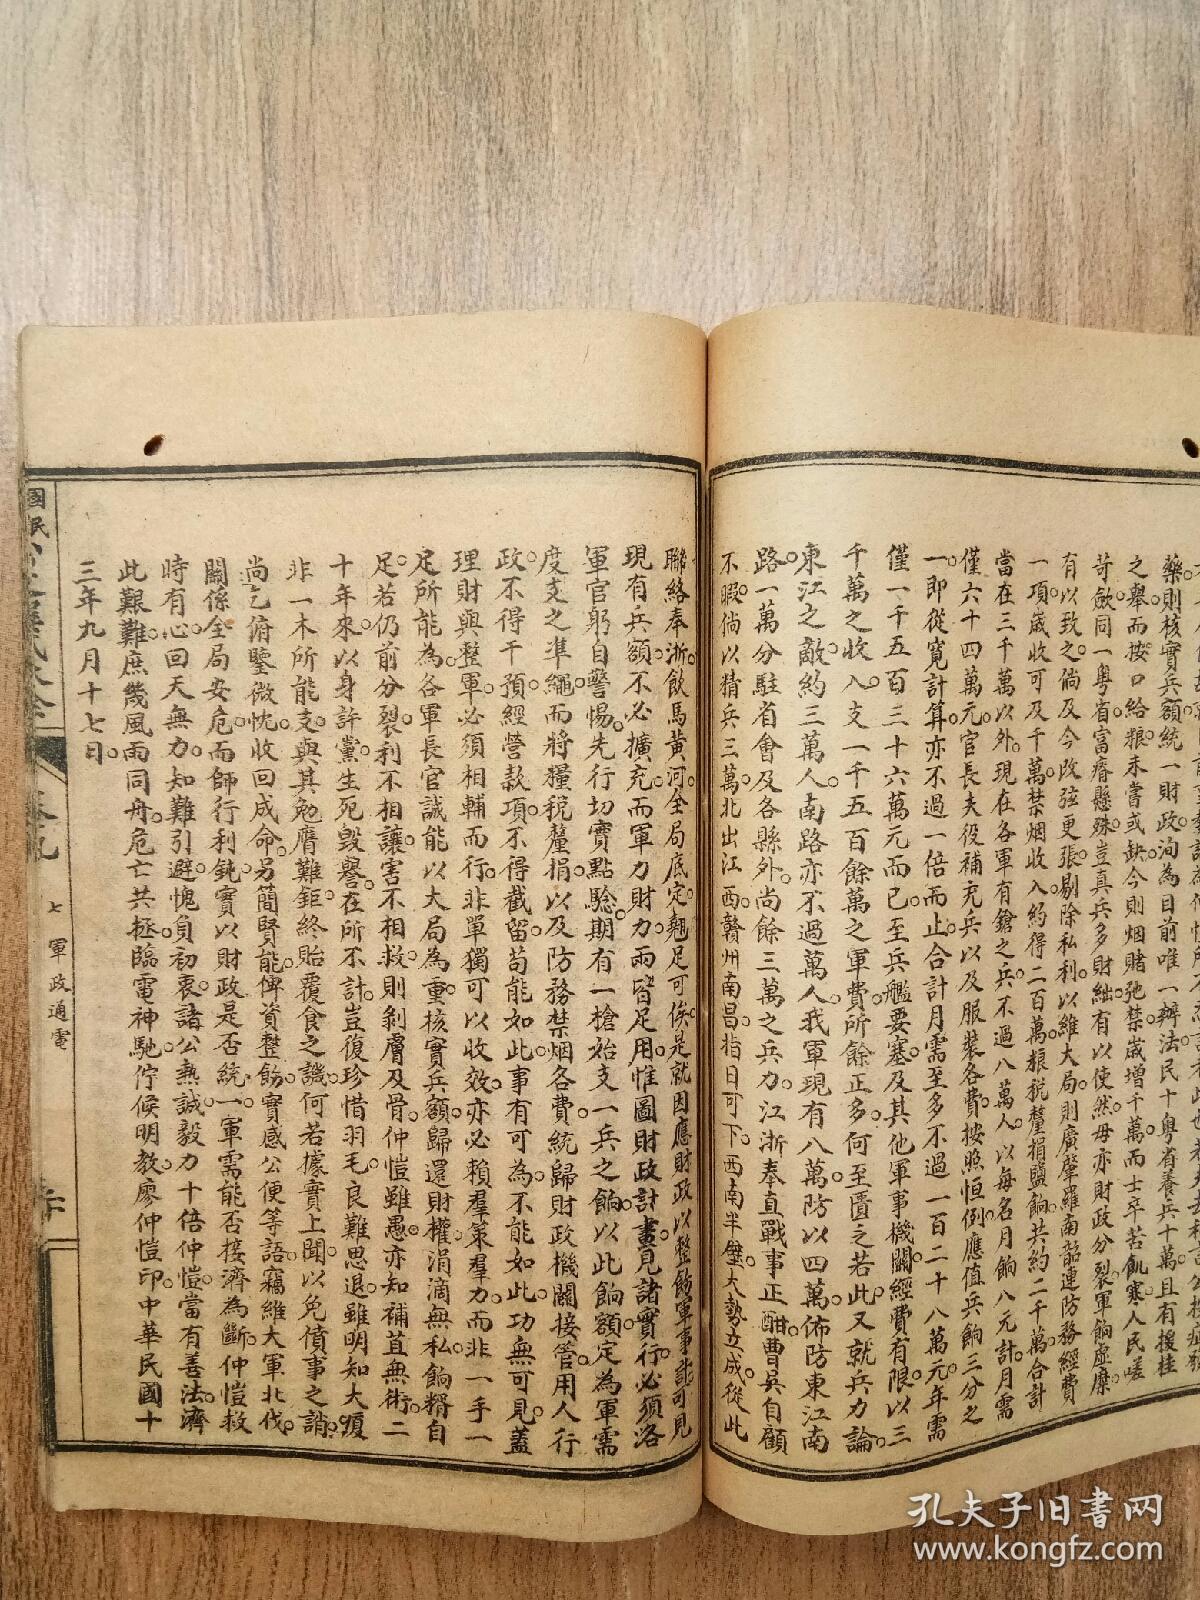 藥則核實兵額統一財政洵為目前唯一辦法民十粵省養兵十萬且有援桂
之舉而按口給粮未嘗或缺今則烟賭弛禁歲增千萬而士卒苦飢寒人民嗟
苛斂同一粵省富瘠懸殊豈真兵多財絀有以使然毋亦財政分裂軍餉虛糜
有以致之倘及今改弦更張剔除私利以維大局則廣肇羅南韶連防務經費
一項歲收可及千萬禁烟收入約得二百萬粮税釐捐鹽餉共約二千萬合計
當在三千萬以外現在各軍有鎗之兵不過八萬人以每名月餉八元計月需
僅六十四萬元官長夫役補充兵以及服裝各費按照恒例應值兵餉三分之
一即從寬計算亦不過一倍而止合計月需至多不過一百二十八萬元年需
僅一千五百三十六萬元而已至兵艦要塞及其他軍事機關經費有限以三
千萬之收入支一千五百餘萬之軍費所餘正多何至匱乏若此又就兵力論
東江之敵約三萬人南路亦不過萬人我軍現有八萬防以四萬佈防東江南
路一萬分駐省會及各縣外尚餘三萬之兵力江浙奉直戰事正酣曹吳自顧
不暇倘以精兵三萬北出江西贛州南昌指日可下西南半壁大勢立成從此
聯絡奉浙飲馬黄河全局底定翹足可俟是就因應財政以整飭軍事言可見
現有兵額不必擴充而軍力財力兩皆足用惟圖財政計畫見諸實行必須洛
軍官躬自警惕先行切實點驗期有一槍始支一兵之餉以此餉額定為軍需
度支之準繩而將糧税釐捐以及防務禁烟各費統歸財政機關接管用人行
政不得干預經營款項不得截留苟能如此事有可為不能如此功無可見蓋
理財與整軍必須相輔而行非單獨可以收效亦必賴羣策羣力而非一手一
足所能為各軍長官誠能以大局為重核實兵額歸還財權涓滴無私餉糈自
足若仍前分裂利不相讓害不相救則剝膚及骨仲愷雖愚亦知補苴無術二
十年來以身許黨生死毁譽在所不計豈復珍惜羽毛良難思退雖明知大廈
非一木所能支與其勉膺難鉅終貽覆食之譏何若據實上聞以免僨事之誚
尚乞俯鑒微忱收回成命另簡賢能俾資整飭實感公便等語竊維大軍北伐
關係全局安危而師行利鈍實以財政是否統一軍需能否接濟為斷仲愷救
時有心回天無力知難引避愧負初衷諸公熱誠毅力十倍仲愷當有善法濟
此艱難庶幾風雨同舟危亡共拯臨電神馳佇候明教廖仲愷印中華民國十
三年九月十七日
七 軍政通電
孔夫子旧書网
www.kongfz.com